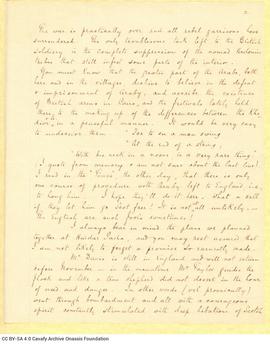 2.
The war is practically over and all rebel garrisons have
surrendered. The only troublesome task left to the British
soldiery is the complete suppression of the nomad bedouin
tribes that still infest some parts of the interior.
You must know that the greater part of the Arabs, both
here and in the villages, decline to believe in the defeat
& imprisonment of Araby, and ascribe the existence
of British arms in Cairo, and the festivals lately held
there, to the making up of the differences between the Khe-
dive, in a peaceful manner. It would be very easy
to undeceive them
"For to see a man swing
"At the end of a string,
"With his neck in a noose is a very rare thing"
(I quote from memory & am not sure about the last line).
I read in the "Times" the other day, that there is only
one course of procedure with Araby left to England i.e.,
to hang him. I hope they'll do it here. What a sell
if they let him go Scot free! It is not all unlikely
the English are such fools sometimes!
I always bear in mind the plans we planned
together at Haidar Pasha, and you may rest assured that
I am not likely to forget a promise so earnestly made.
Mr Davis is still in England and will not return
before November. In the meantime Mr Taylor guides the
flock and like a true shepherd did not desert in the hour
of need and danger. In other words (vel prosaically)
went through bombardment and all with a courageous
spirit constantly stimulated with deep libation of Scotch
CC BY-SA 4.0 Cavafy Archive Onassis Foundation